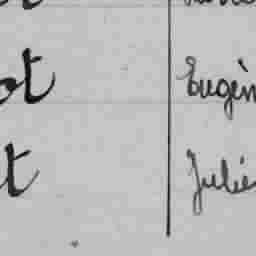 ot Eugèn
t Julie